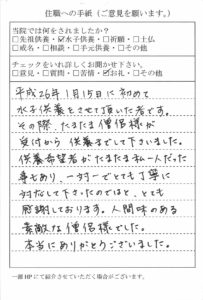 住職への手紙（ご意見を願います。）
当院では何をされましたか？
□先祖供養・☑水子供養・□祈願・□十仏
□戒名・□相談・□手元供養・□その他
チェックをいれ詳しくお聞かせ下さい。
□意見・□質問・□苦情・☑お礼・□その他
平成26年1月15日に初めて
水子供養をさせて頂いた者です。
その際、たまたま僧侶様が
受付から供養までして下さいました。
供養希望者がたまたま私一人だった
事もあり、一対一でとても丁寧に
対応して下さったのではと、とても
感謝しております。人間味のある
素敵な僧侶様でした。
本当にありがとうございました。
一部HPにて紹介させていただく場合がございます。